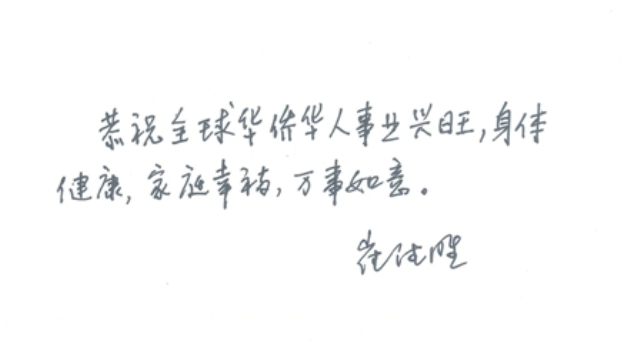 恭祝全球华侨华人事业兴旺,身体
健康,家庭幸福,万事如意。